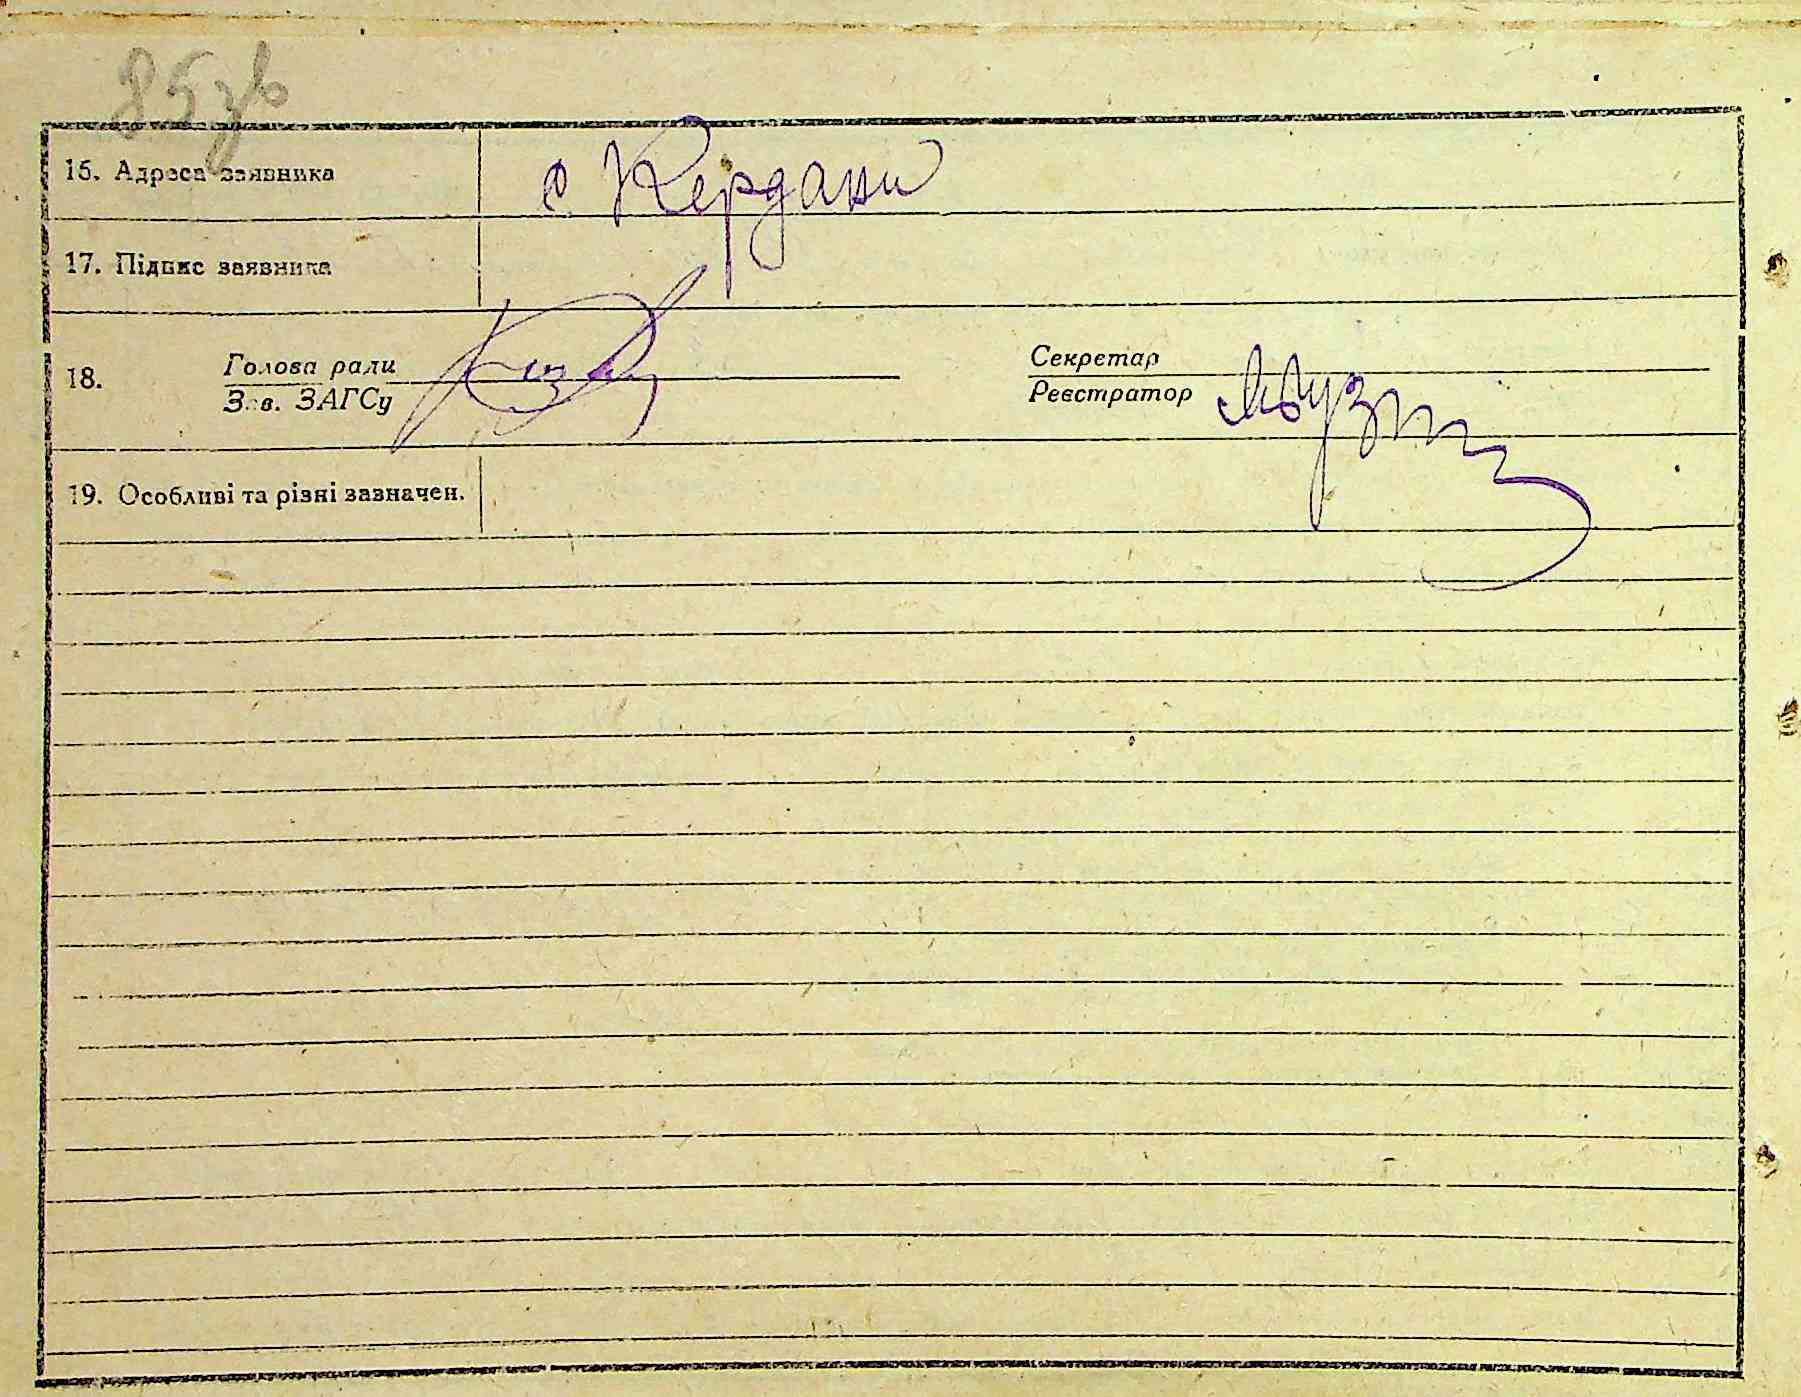 85зв
15. Адреса заявника с. Кердани
17. Підпис заявника
18. Голова ради Секретар
Зав. ЗАГСу Реєстратор
19. Особливі та різні зазначен.